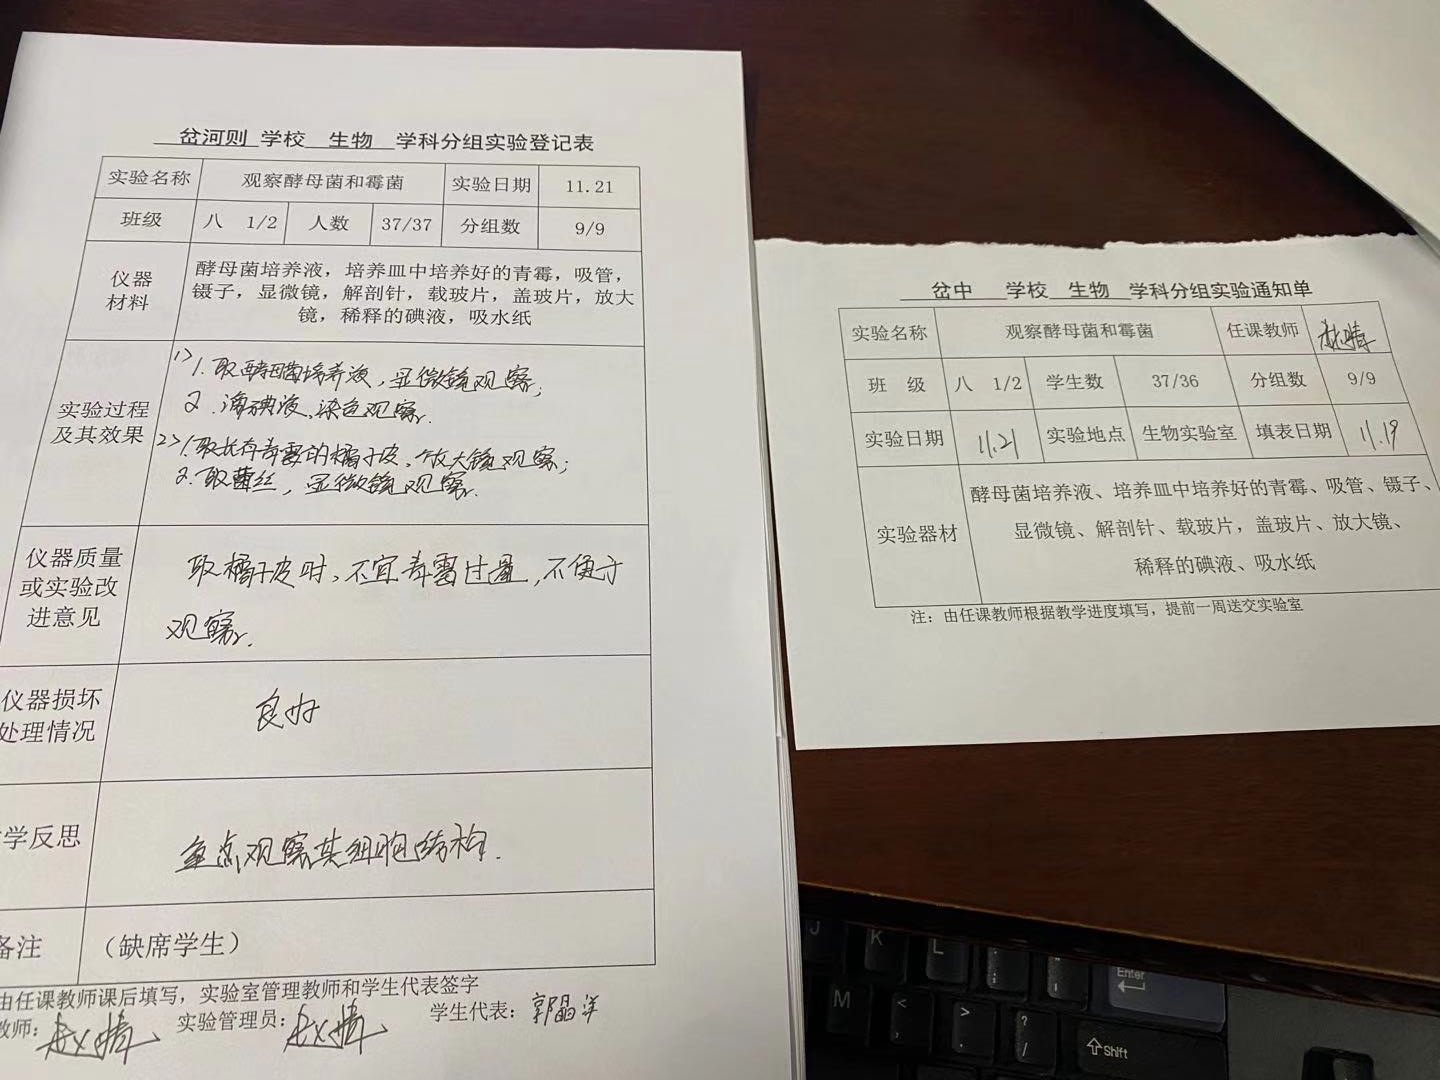 岔河则 学校 生物 学科分组实验登记表
实验名称 观察酵母菌和霉菌 实验日期 11.21
班级 八 1/2 人数 37/37 分组数 9/9
仪器
材料
酵母菌培养液，培养皿中培养好的青霉，吸管，
镊子，显微镜，解剖针，载玻片，盖玻片，放大
镜，稀释的碘液，吸水纸
实验过程
及其效果
1> 1. 取酵母菌培养液，显微镜观察；
2. 滴碘液，染色观察.
2> 1. 取长有青霉的橘子皮，放大镜观察；
2. 取菌丝，显微镜观察.
仪器质量
或实验改
进意见
取橘子皮时，不宜青霉过量，不便于
观察.
仪器损坏
处理情况
良好
学反思
重点观察其细胞结构.
备注 （缺席学生）
由任课教师课后填写，实验室管理教师和学生代表签字
教师：赵晴 实验管理员：赵晴 学生代表：郭晶洋
岔中 学校 生物 学科分组实验通知单
实验名称 观察酵母菌和霉菌 任课教师 赵晴
班 级 八 1/2 学生数 37/36 分组数 9/9
实验日期 11.21 实验地点 生物实验室 填表日期 11.19
实验器材
酵母菌培养液、培养皿中培养好的青霉、吸管、镊子、
显微镜、解剖针、载玻片，盖玻片、放大镜、
稀释的碘液、吸水纸
注：由任课教师根据教学进度填写，提前一周送交实验室
J K L : ; " ' Enter
M < , > . ? / Shift